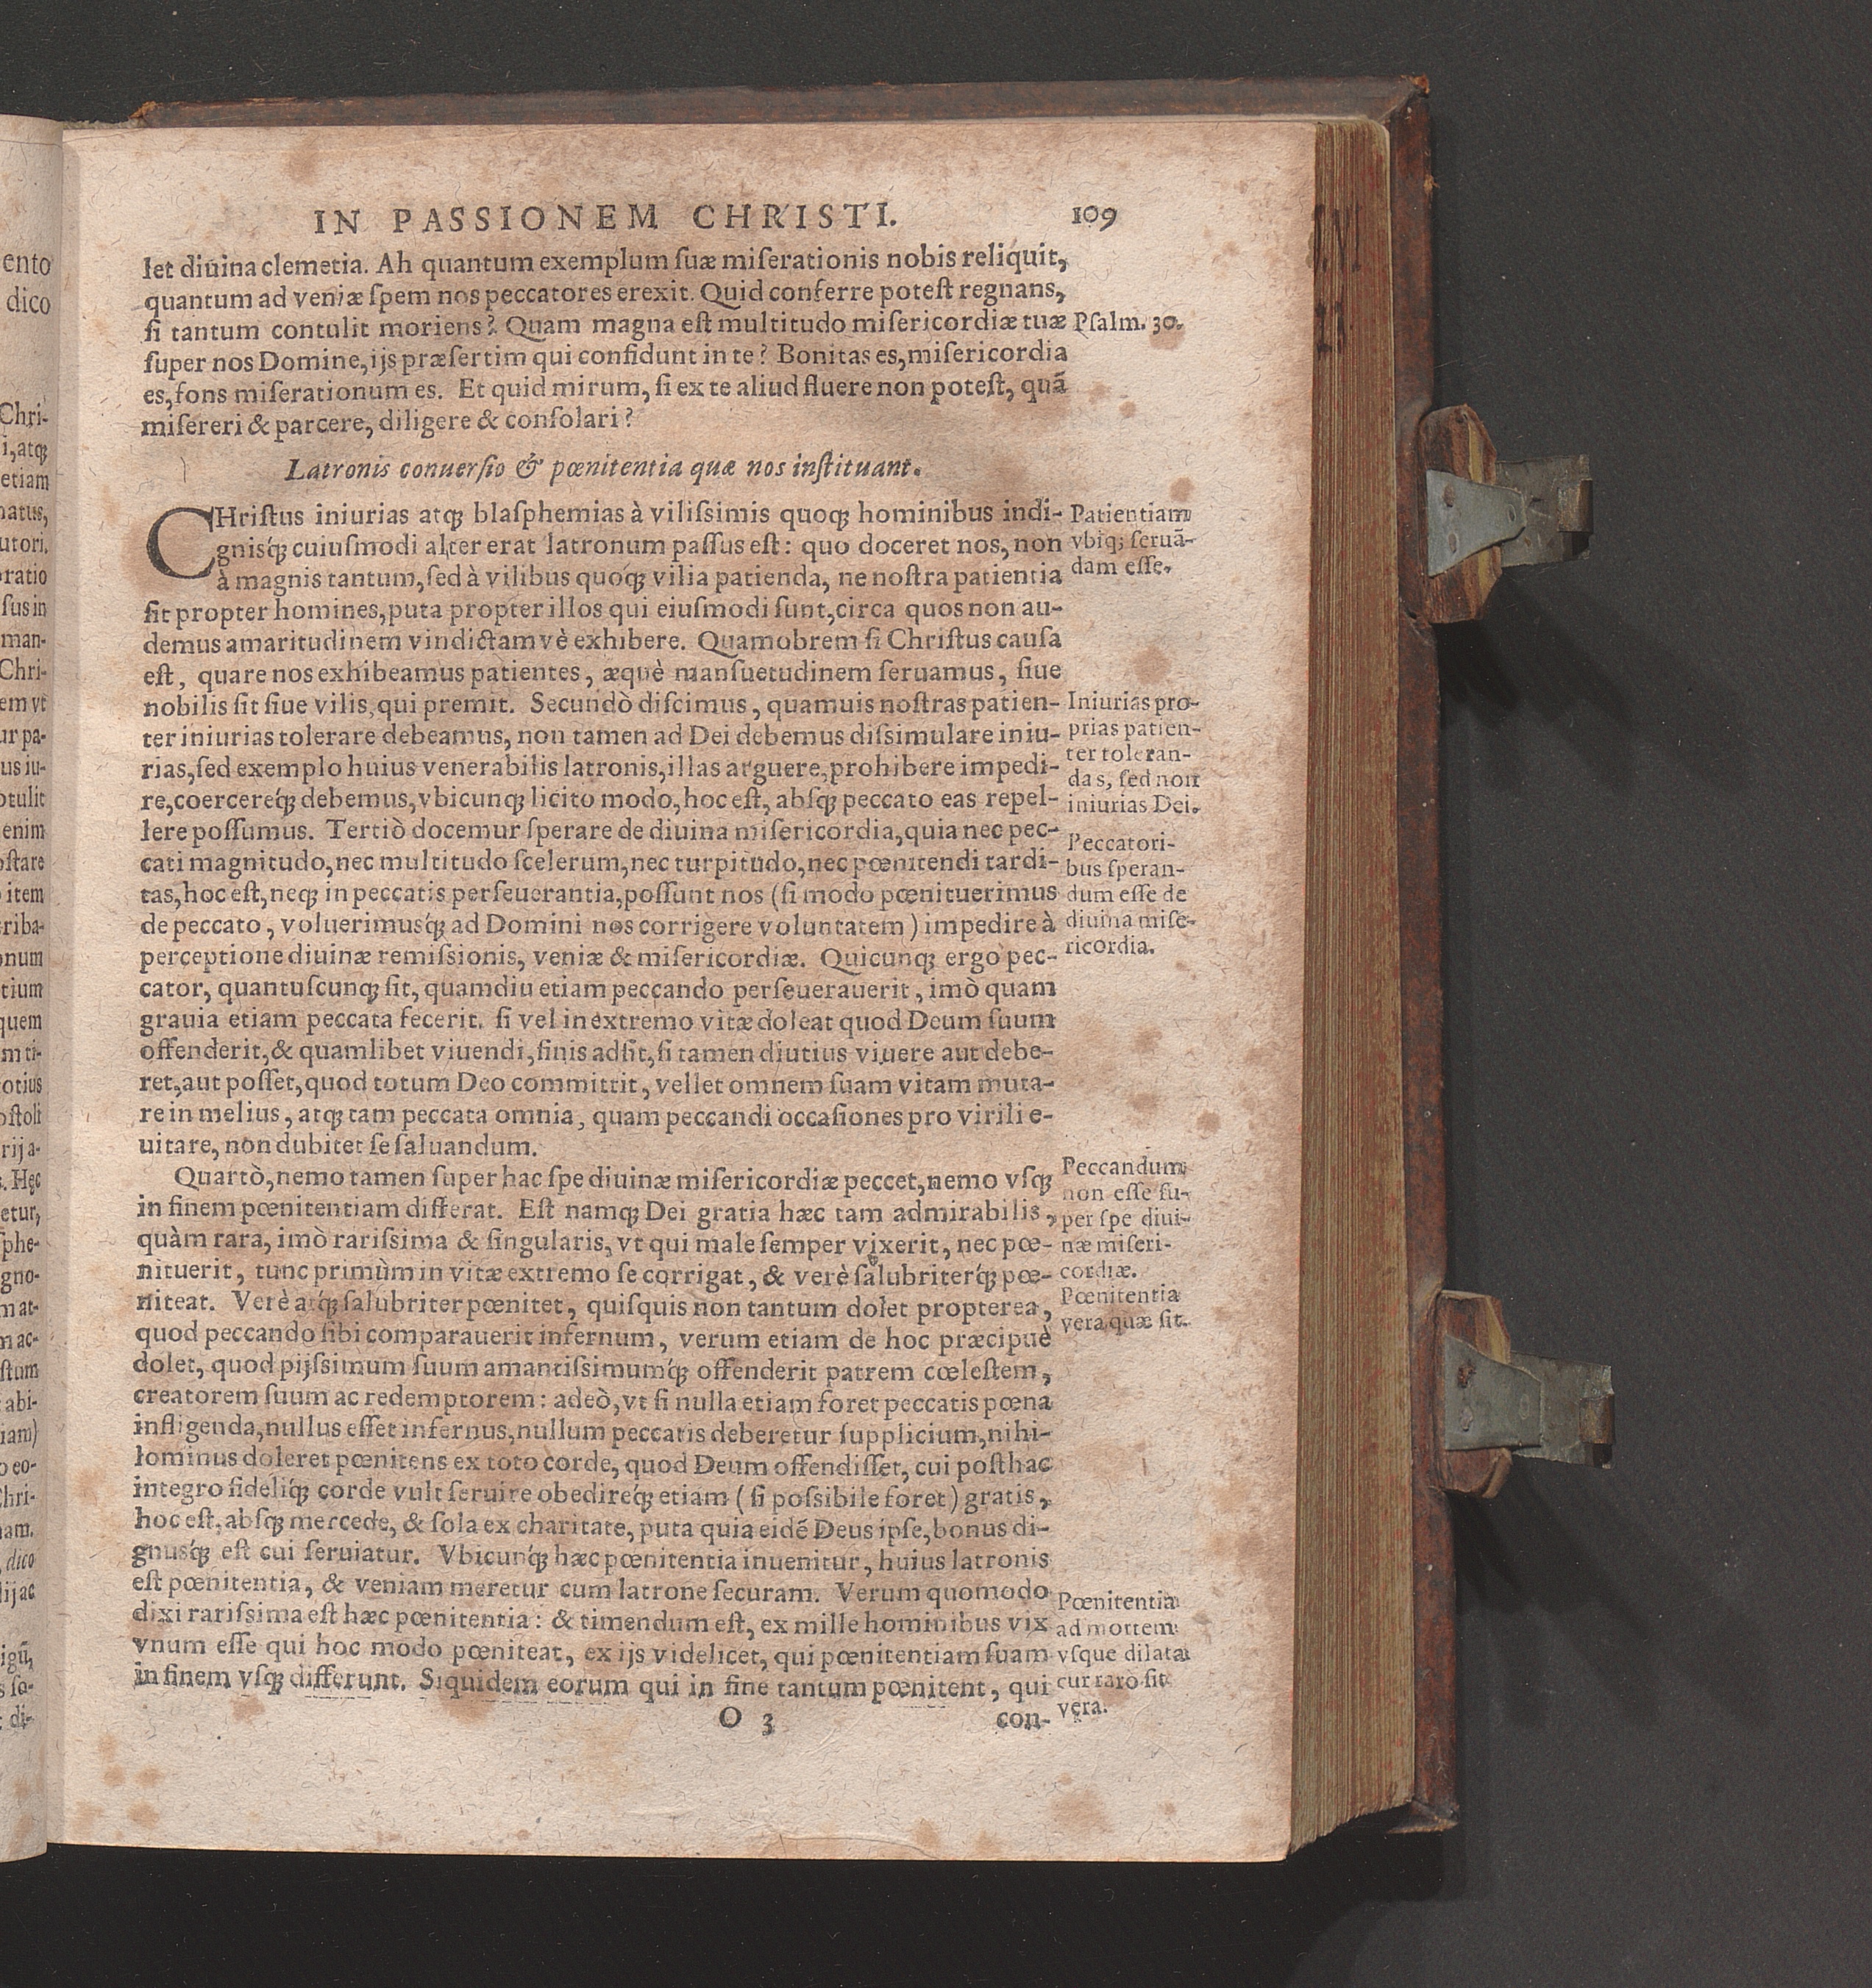 IN PASSIONEM CHRISTI. 109
let diuina clemetia. Ah quantum exemplum suæ miserationis nobis reliquit,
quantum ad veniæ spem nos peccatores erexit. Quid conferre potest regnans,
si tantum contulit moriens? Quam magna est multitudo misericordiæ tuæ
super nos Domine, ijs præsertim qui confidunt in te? Bonitas es, misericordia
es, fons miserationum es. Et quid mirum, si ex te aliud fluere non potest, quã
misereri & parcere, diligere & consolari?
Psalm. 30.
Latronis conuersio & pœnitentia quæ nos instituant.
CHristus iniurias atq; blasphemias à vilissimis quoq; hominibus indi-
gnisq́; cuiusmodi alter erat latronum passus est: quo doceret nos, non
à magnis tantum, sed à vilibus quoq; vilia patienda, ne nostra patientia
sit propter homines, puta propter illos qui eiusmodi sunt, circa quos non au-
demus amaritudinem vindictam vè exhibere. Quamobrem si Christus causa
est, quare nos exhibeamus patientes, æquè mansuetudinem seruamus, siue
nobilis sit siue vilis, qui premit. Secundò discimus, quamuis nostras patien-
ter iniurias tolerare debeamus, non tamen ad Dei debemus dissimulare iniu-
rias, sed exemplo huius venerabilis latronis, illas arguere, prohibere impedi-
re, coercereq́; debemus, vbicunq; licito modo, hoc est, absq; peccato eas repel-
lere possumus. Tertiò docemur sperare de diuina misericordia, quia nec pec-
cati magnitudo, nec multitudo scelerum, nec turpitudo, nec pœnitendi tardi-
tas, hoc est, neq; in peccatis perseuerantia, possunt nos (si modo pœnituerimus
de peccato, voluerimusq́; ad Domini nos corrigere voluntatem) impedire à
perceptione diuinæ remissionis, veniæ & misericordiæ. Quicunq; ergo pec-
cator, quantuscunq; sit, quamdiu etiam peccando perseuerauerit, imò quam
grauia etiam peccata fecerit. si vel in extremo vitæ doleat quod Deum suum
offenderit, & quamlibet viuendi, finis adsit, si tamen diutius viuere aut debe-
ret, aut posset, quod totum Deo committit, vellet omnem suam vitam muta-
re in melius, atq; tam peccata omnia, quam peccandi occasiones pro virili e-
uitare, non dubitet se saluandum.
Patientiam
vbiq; seruã-
dam esse.
Iniurias pro-
prias patien-
ter toleran-
das, sed non
iniurias Dei.
Peccatori-
bus speran-
dum esse de
diuina mise-
ricordia.
Quartò, nemo tamen super hac spe diuinæ misericordiæ peccet, nemo vsq;
in finem pœnitentiam differat. Est namq; Dei gratia hæc tam admirabilis,
quàm rara, imò rarissima & singularis, vt qui male semper vixerit, nec pœ-
nituerit, tunc primùm in vitæ extremo se corrigat, & verè salubriterq́; pœ-
niteat. Verè atq́; salubriter pœnitet, quisquis non tantum dolet propterea,
quod peccando sibi comparauerit infernum, verum etiam de hoc præcipuè
dolet, quod pijssimum suum amantissimumq́; offenderit patrem cœlestem,
creatorem suum ac redemptorem: adeò, vt si nulla etiam foret peccatis pœna
infligenda, nullus esset infernus, nullum peccatis deberetur supplicium, nihi-
lominus doleret pœnitens ex toto corde, quod Deum offendisset, cui posthac
integro fideliq́; corde vult seruire obedireq́; etiam (si possibile foret) gratis,
hoc est, absq; mercede, & sola ex charitate, puta quia eidẽ Deus ipse, bonus di-
gnusq́; est cui seruiatur. Vbicunq́; hæc pœnitentia inuenitur, huius latronis
est pœnitentia, & veniam meretur cum latrone securam. Verum quomodo
dixi rarissima est hæc pœnitentia: & timendum est, ex mille hominibus vix
vnum esse qui hoc modo pœniteat, ex ijs videlicet, qui pœnitentiam suam
in finem vsq; differunt. Siquidem eorum qui in fine tantum pœnitent, qui
Peccandum
non esse su-
per spe diui-
næ miseri-
cordiæ.
Pœnitentia
vera quæ sit.
Pœnitentia
ad mortem
vsque dilata
cur rarò sit
vera.
O 3 con-
ento
dico
Chri-
i, atq;
etiam
natus,
utori.
oratio
sus in
man-
Chri-
em vt
ur pa-
us iu-
otulit
enim
ostare
item
criba-
onum
tium
quem
m ti-
otius
ostoli
rij a-
s. Hęc
etur,
sphe-
gno-
m at-
m ac-
stum
abi-
iam)
o eo-
Chri-
nam.
dico
lij ac
igũ,
s so-
t di-